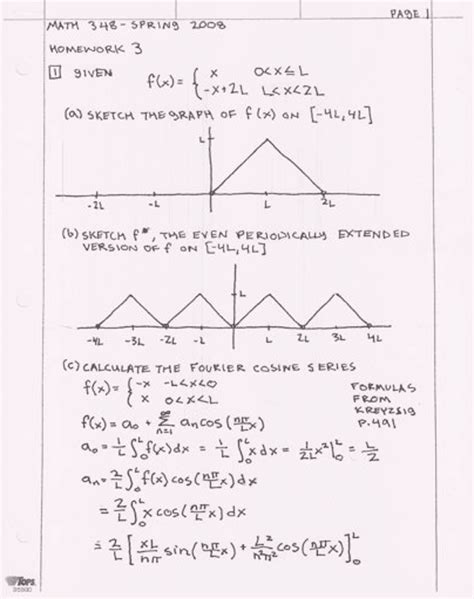 PAGE 1
MATH 348 - SPRING 2008
HOMEWORK 3
1 GIVEN f(x) = { x 0<x≤L
-x+2L L<x<2L
(a) SKETCH THE GRAPH OF f(x) ON [-4L,4L]
L
-2L -L L 2L
(b) SKETCH f*, THE EVEN PERIODICALLY EXTENDED
VERSION OF f ON [-4L,4L]
L
-4L -3L -2L -L L 2L 3L 4L
(c) CALCULATE THE FOURIER COSINE SERIES
f(x) = { -x -L<x<0
x 0<x<L
FORMULAS
FROM
KREYZSIG
P.491
f(x) = a₀ + ∑_{n=1}^{∞} aₙ cos(nπ/L x)
a₀ = 1/L ∫₀ᴸ f(x)dx = 1/L ∫₀ᴸ x dx = 1/2L x²|₀ᴸ = L/2
aₙ = 2/L ∫₀ᴸ f(x) cos(nπ/L x) dx
= 2/L ∫₀ᴸ x cos(nπ/L x) dx
= 2/L [ xL/nπ sin(nπ/L x) + L²/n²π² cos(nπ/L x) ]₀ᴸ
TOPS